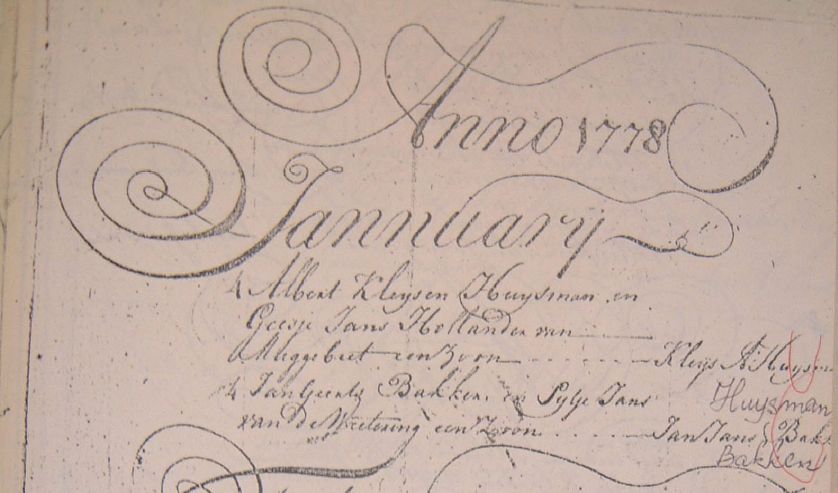 Anno 1778
Jannuary
4 Albert Kleysen Huysman en
Geesje Jans Hollander van
Muggebeet een Zoon - - - - - Kleijs A: Huysm
4 Jan Geerts Bakker en Sytje Jans
Huysman
van de Weetering een Zoon - - - - - Jan Jans Bakk
Bakken